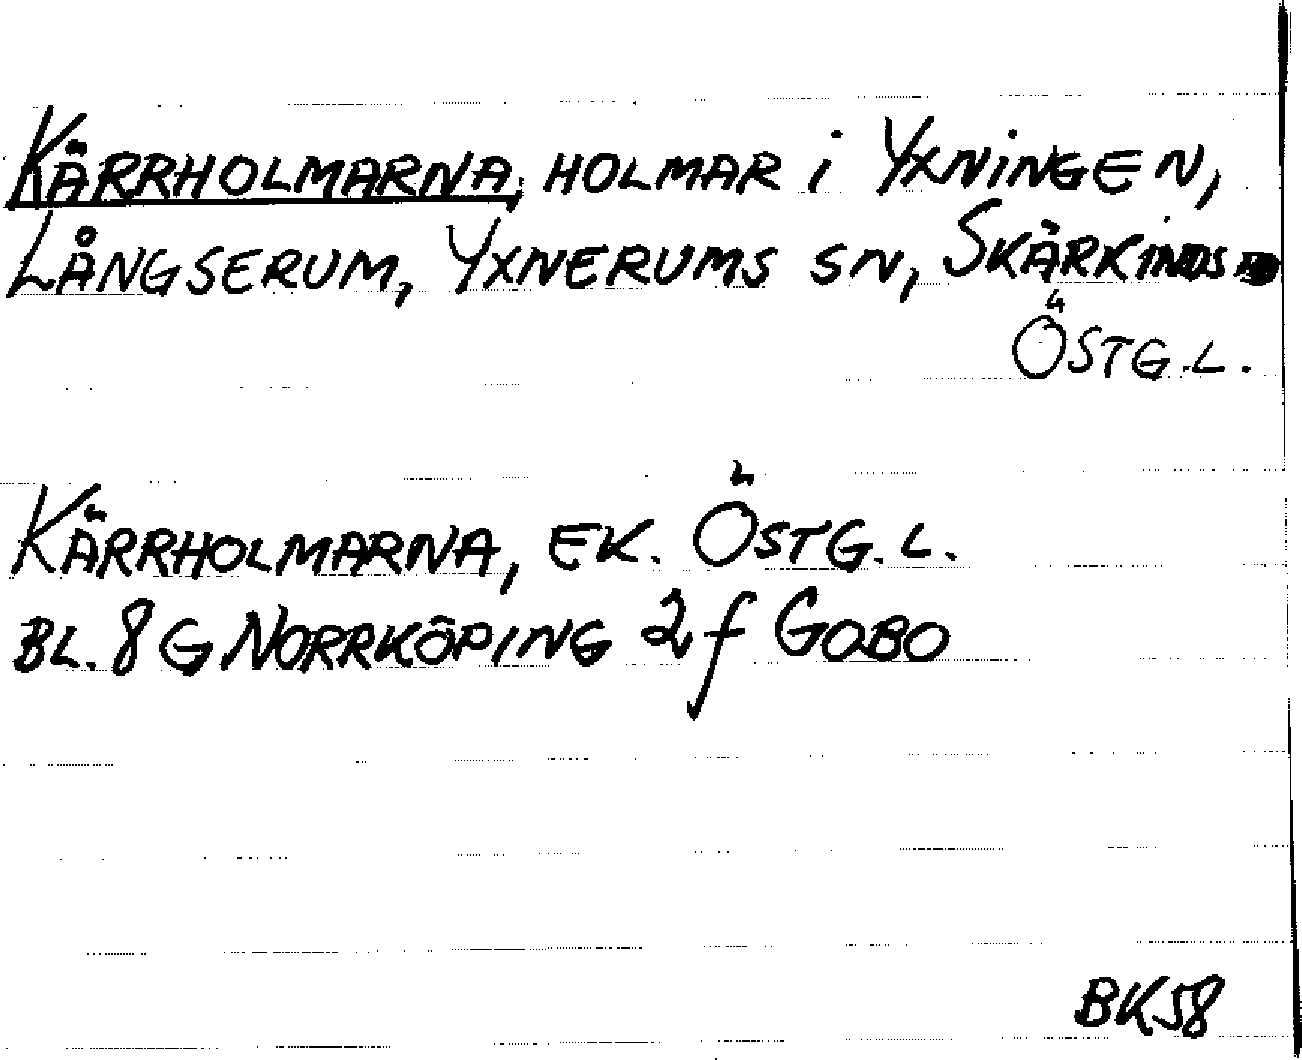 KÄRRHOLMARNA, HOLMAR i YXNINGEN,
LÅNGSERUM, YXNERUMS SN, SKÄRKINDS
ÖSTG.L.
KÄRRHOLMARNA, EK. ÖSTG.L.
BL. 8G NORRKÖPING 2f GOBO
BK58